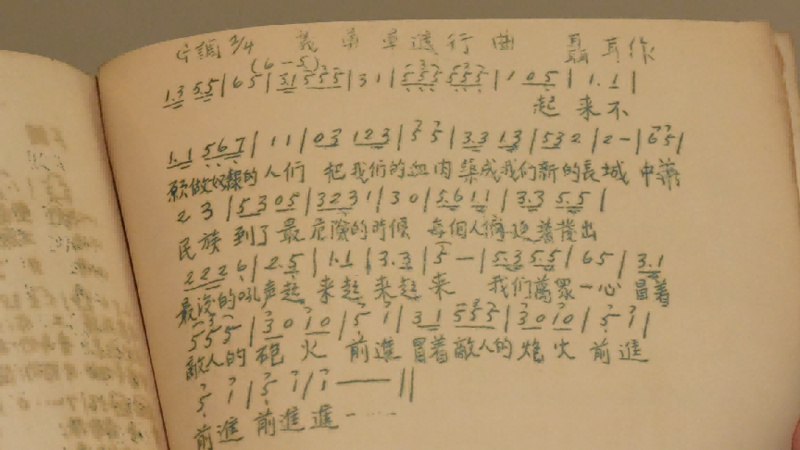 G調 2/4 義勇軍進行曲 聶耳作
(6-5)
1.3 5.5 | 6 5 | 3.1 5 5 5 | 3 1 | 5 5 5 5 5 5 | 1 0 5 | 1.1 |
起 来不
1.1 5 6 7 | 1 1 | 0 3 1 2 3 | 5 5 | 3.3 1 3 | 5 3 2 | 2 - | 6 5 |
願做奴隸的人们 把我们的血肉 築成我们新的長城 中華
2 3 | 5 3 0 5 | 3 2 3 1 | 3 0 | 5.6 1 1 | 3.3 5.5 |
民族 到了最危險的時候 每個人
2 2 2 6 | 2.5 | 1.1 | 3.3 | 5 - | 5.3 5 5 | 6 5 | 3.1
最後的吼声起 来起 来起来 我们萬眾一心 冒着
5 5 5 | 3 0 1 0 | 5 1 | 3 1 5 5 5 | 3 0 1 0 | 5 1 |
敵人的砲火 前進 冒着敵人的炮火 前進
5 1 | 5 1 | 1 —— ||
前進 前進 進……